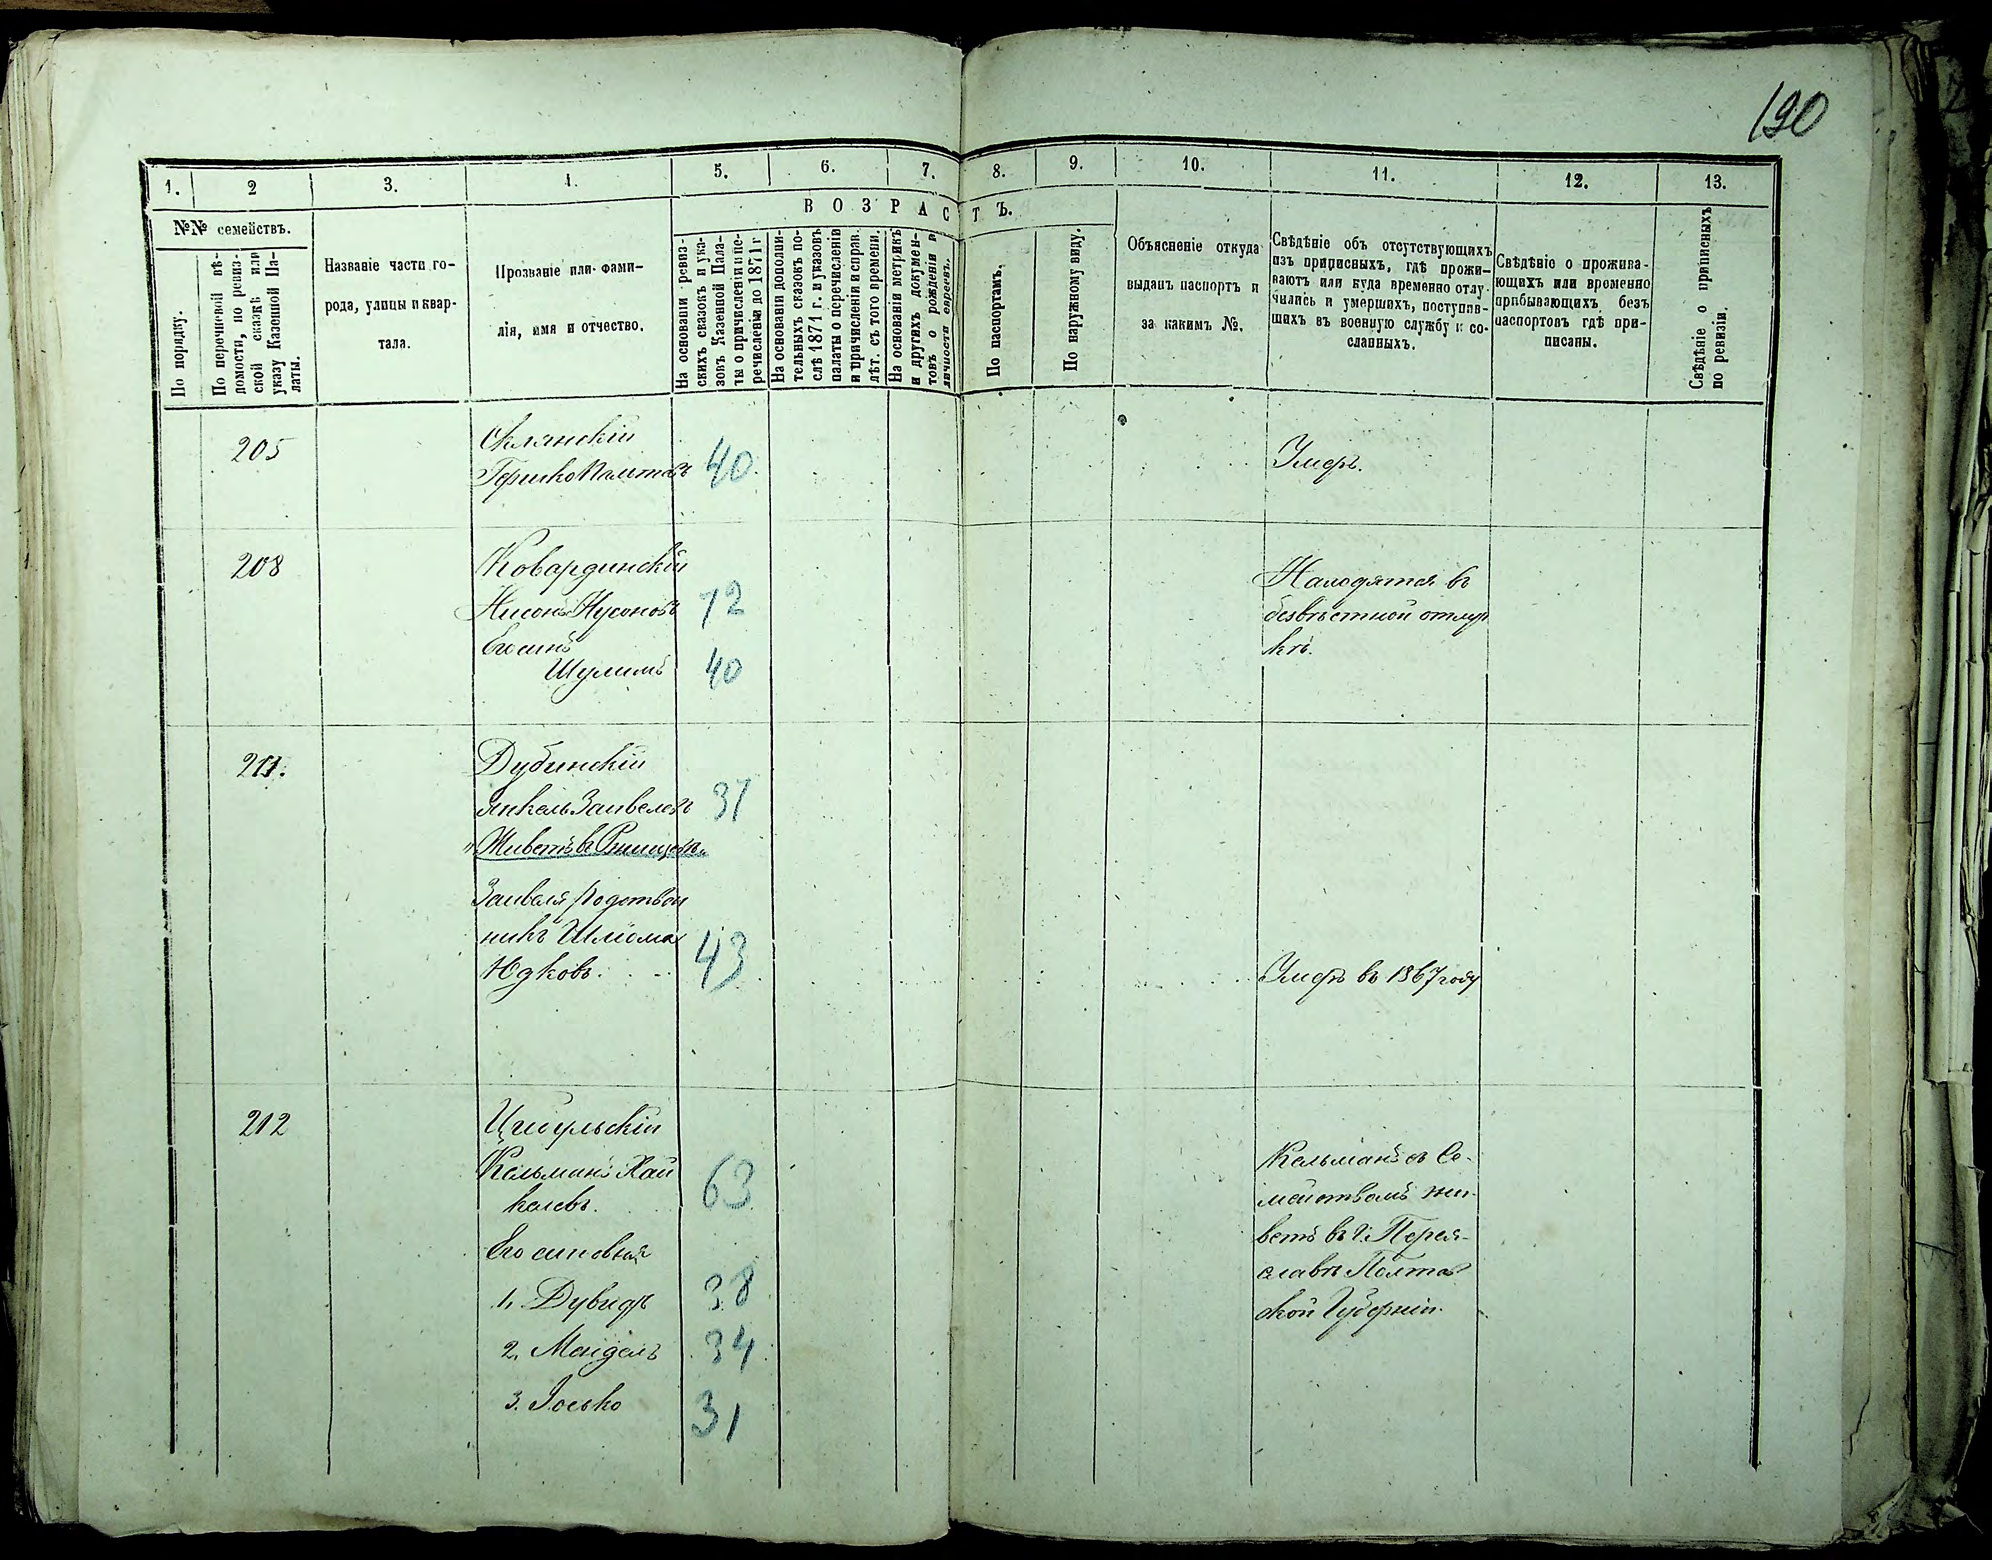 190
1.
2
3.
4.
5.
6.
7.
8.
9.
10.
11.
12.
13.
ВОЗРАСТЪ.
№№ семействъ.
По порядку.
По перечневой вѣ-
домости, по ревиз-
ской сказкѣ или
указу Казенной Па-
латы.
Названіе части го-
рода, улицы и квар-
тала.
Прозваніе или фами-
лія, имя и отчество.
На основаніи ревиз-
скихъ сказокъ и ука-
зовъ Казенной Пала-
ты о причисленіи и пе-
речисленіи до 1871 г
На основаніи дополни-
тельныхъ сказокъ по-
слѣ 1871 г. и указовъ
палаты о перечисленіи
и причисленіи и справ.
лѣт. съ того времени.
На основаніи метрикъ
и другихъ докумен-
товъ о рожденіи и
личности евреевъ.
По паспортамъ.
По наружному виду.
Объясненіе откуда
выданъ паспортъ и
за какимъ №.
Свѣдѣніе объ отсутствующихъ
изъ приписныхъ, гдѣ прожи-
ваютъ или куда временно отлу-
чились и умершихъ, поступив-
шихъ въ военную службу и со-
сланныхъ.
Свѣдѣніе о прожива-
ющихъ или временно
прибывающихъ безъ
паспортовъ гдѣ при-
писаны.
Свѣдѣніе о приписныхъ
по ревизіи.
205
Склянскій
40
Умеръ.
208
Ковардинскій
Нисонъ Нусоновъ 72
Его сынъ
Шулимъ 40
Находятся въ
безвѣстной отлуч
кѣ.
211.
Дубинскій
Янкель Заивеловъ 37
Живетъ въ
Заивеля родствен
никъ Шлиома
Юдковъ. 43
Умеръ въ 1867 году
212
Цибульскій
Кельманъ Хаи
келевъ. 63
Его сыновья
1. Дувидъ 38
2. Маидель 34
3. Іосько 31
Кельманъ съ Се-
меиствомъ жи-
ветъ въ г. Перея-
славѣ Полтав
ской Губерніи.